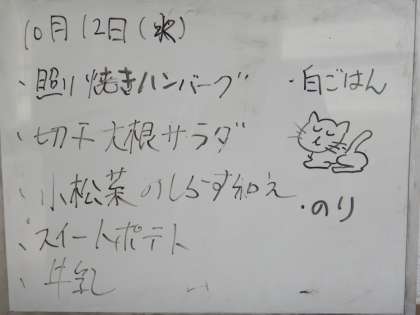 10月12日(水)
・照り焼きハンバーグ
・白ごはん
・切干大根サラダ
・小松菜のしらす和え
・のり
・スイートポテト
・牛乳